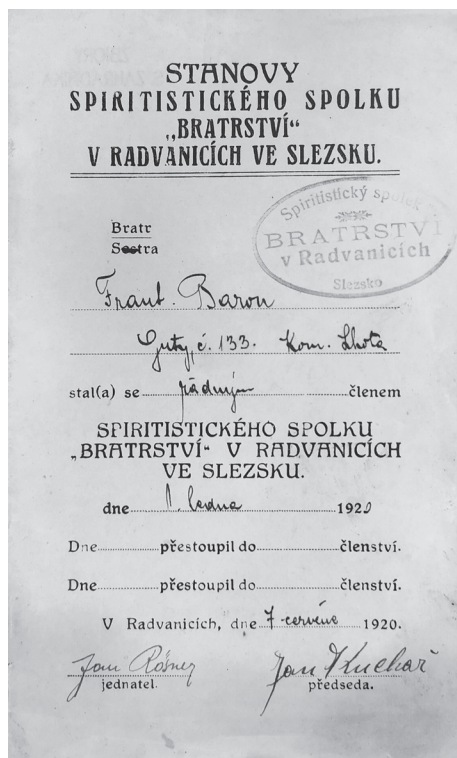 STANOVY
SPIRITISTICKÉHO SPOLKU
„BRATRSTVÍ“
V RADVANICÍCH VE SLEZSKU.
Spiritistický spolek
BRATRSTVÍ
v Radvanicích
Slezsko
Bratr
Sestra
Frant. Baron
Guty, č. 133. Kom. Lhota
stal(a) se řádným členem
SPIRITISTICKÉHO SPOLKU
„BRATRSTVÍ“ V RADVANICÍCH
VE SLEZSKU.
dne 1. ledna 1920
Dne přestoupil do členství.
Dne přestoupil do členství.
V Radvanicích, dne 7 června 1920.
Jan Kuchař
jednatel. předseda.